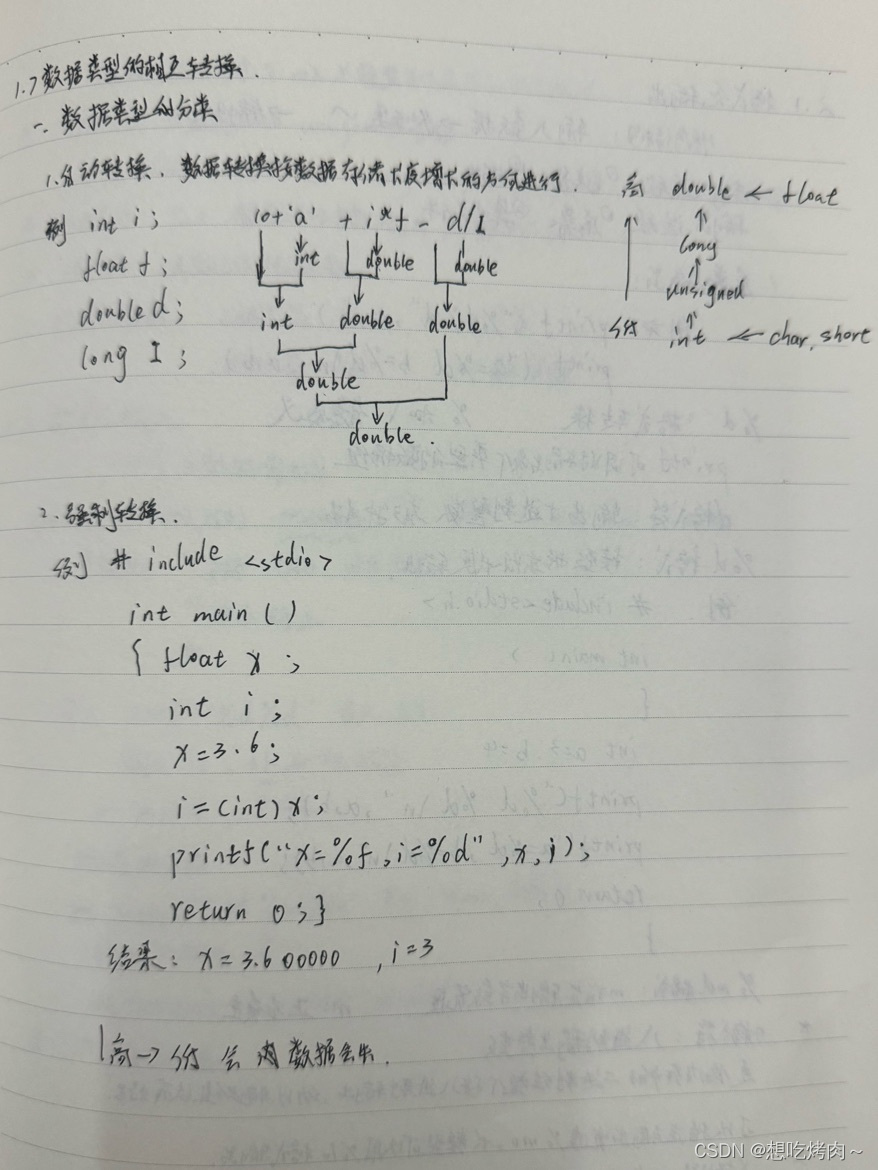 1.7数据类型的相互转换.
一、数据类型的分类
1.自动转换. 数据转换按数据存储长度增长的方向进行.
高 double ← float
↑ ↑
long
↑
unsigned
↑
低 int ← char, short
例 int i; 10+'a' + i*f - d/I
float f; int double double
double d; int double double
long I; double
double.
2.强制转换.
例 # include <stdio>
int main ()
{ float x ;
int i ;
x=3.6;
i=(int)x;
printf("x=%f,i=%d",x,i);
return 0;}
结果: x=3.600000 ,i=3
高→低 会 数据丢失.
CSDN @想吃烤肉～